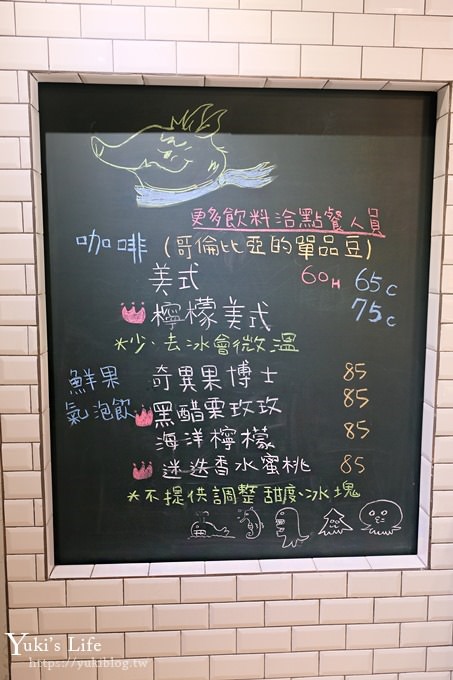 更多飲料洽點餐人員
咖啡 (哥倫比亞的單品豆)
美式 60H 65C
檸檬美式 75C
*少、去冰會微溫
鮮果 奇異果博士 85
氣泡飲 黑醋栗玫玫 85
海洋檸檬 85
迷迭香水蜜桃 85
*不提供調整甜度、冰塊
Yuki's Life
https://yukiblog.tw